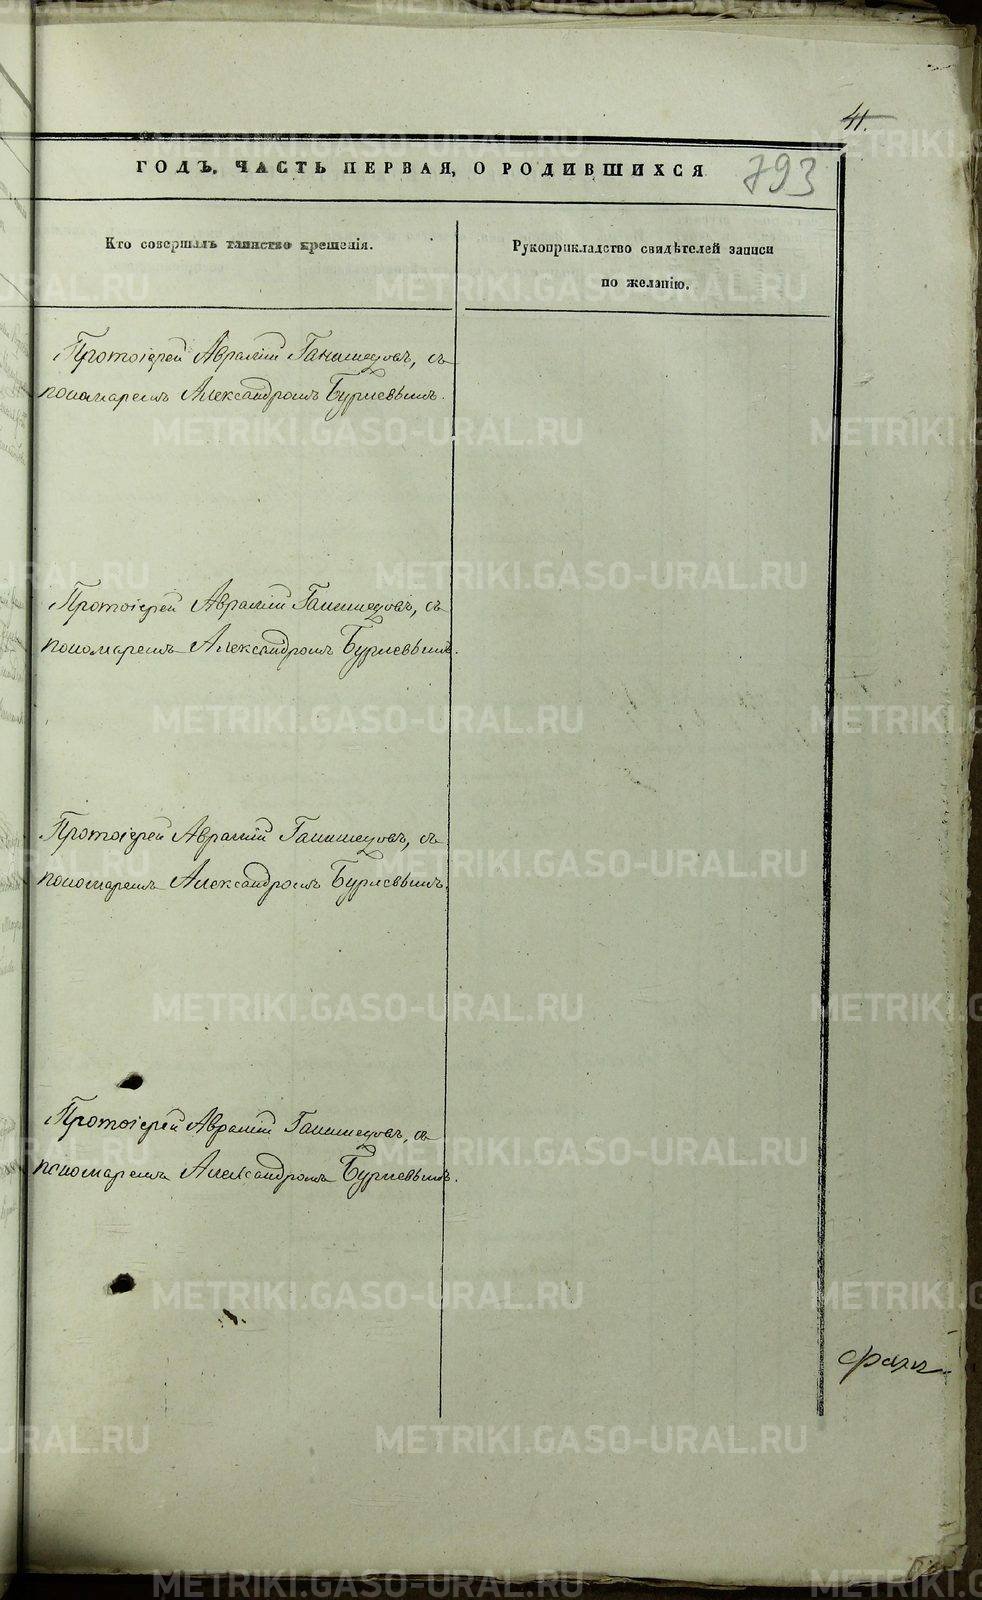 41.
ГОДЪ, ЧАСТЬ ПЕРВАЯ, О РОДИВШИХСЯ
793
Кто совершалъ таинство крещенія.
Рукоприкладство свидѣтелей записи
по желанію.
Протоіерей Аврамій Ганимедовъ, съ
пономаремъ Александромъ Бурлевымъ.
Протоіерей Аврамій Ганимедовъ, съ
пономаремъ Александромъ Бурлевымъ.
Протоіерей Аврамій Ганимедовъ, съ
пономаремъ Александромъ Бурлевымъ.
Протоіерей Аврамій Ганимедовъ, съ
пономаремъ Александромъ Бурлевымъ.
METRIKI.GASO-URAL.RU